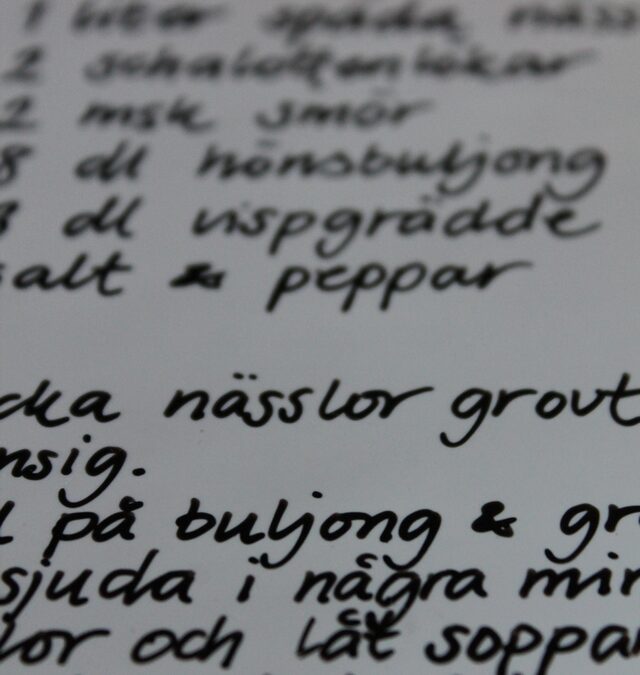 1 liter späda näss
2 schalottenlökar
2 msk smör
8 dl hönsbuljong
3 dl vispgrädde
salt & peppar
cka nässlor grovt
nsig.
l på buljong & gr
sjuda i några min
lor och låt soppan